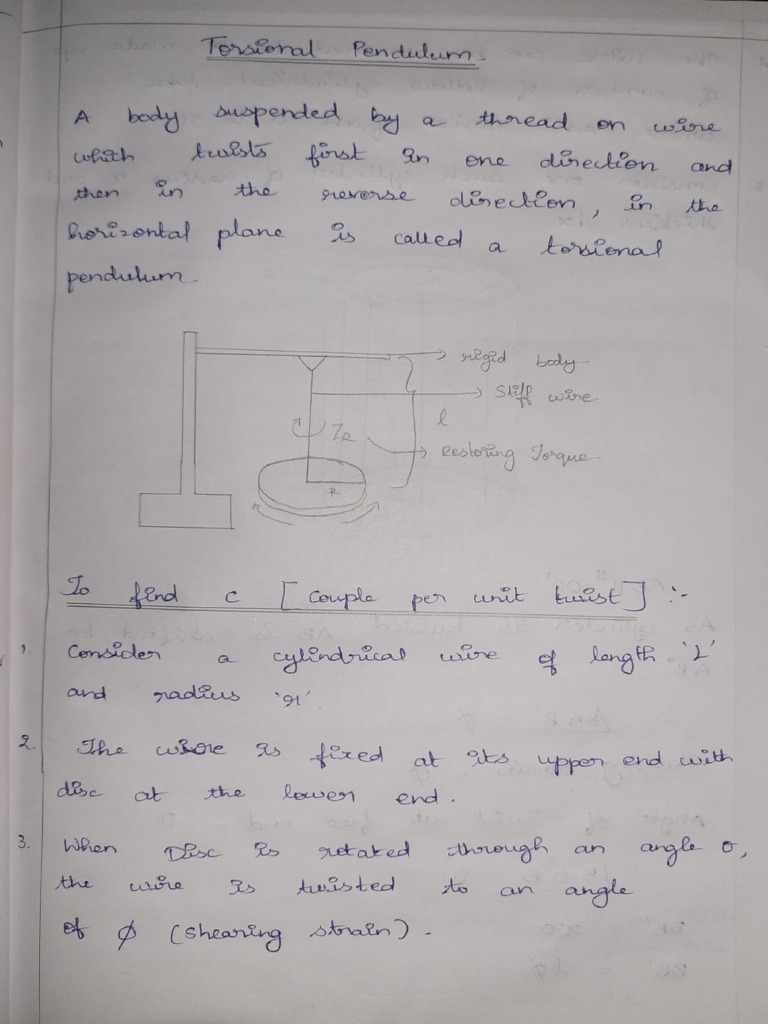 Torsional Pendulum.
A body suspended by a thread or wire
which twists first in one direction and
then in the reverse direction, in the
horizontal plane is called a torsional
pendulum.
rigid body
Stiff wire
l
TR
Restoring Torque
R
To find c [couple per unit twist] :-
1. Consider a cylindrical wire of length 'L'
and radius 'r'.
2. The wire is fixed at its upper end with
disc at the lower end.
3. When Disc is rotated through an angle θ,
the wire is twisted to an angle
of φ (shearing strain).